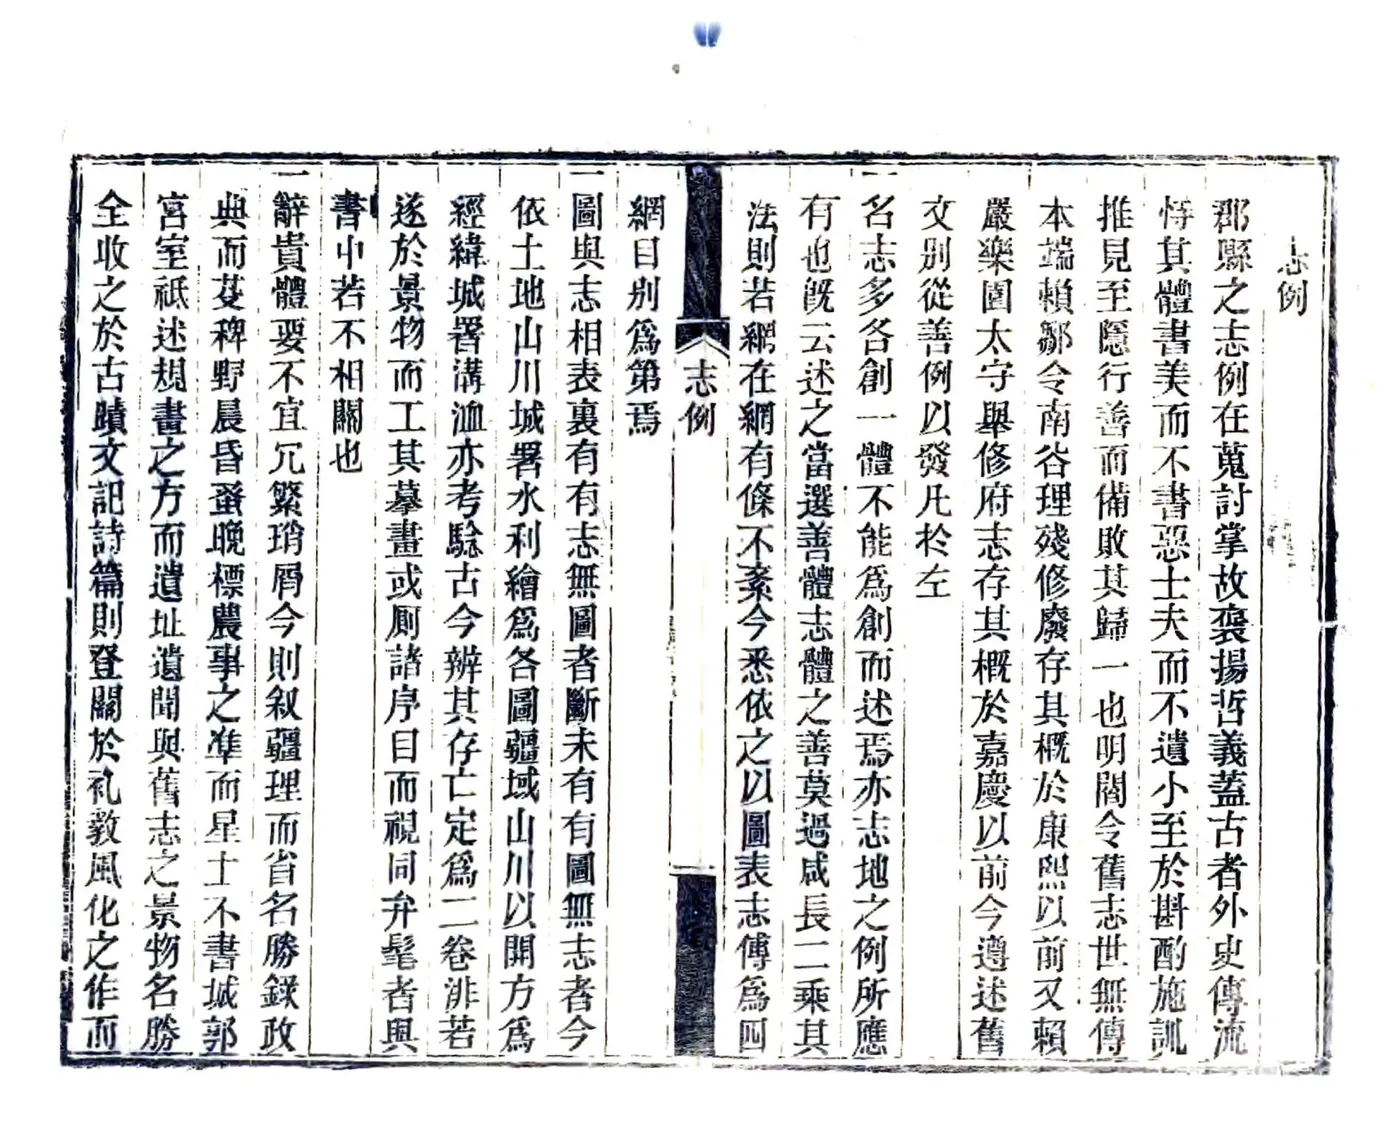 志例
郡縣之志例在蒐討掌故褒揚哲義蓋古者外史傳流
特其體書美而不書惡士夫而不遺小至於斟酌施訓
推見至隱行善而備敗其歸一也明閻令舊志世無傳
本端賴鄒令南谷理殘修廢存其概於康熙以前又賴
嚴樂園太守舉修府志存其概於嘉慶以前今遵述舊
文別從善例以發凡於左
一名志多各創一體不能爲創而述焉亦志地之例所應
有也旣云述之當選善體志體之善莫過咸長二乘其
法則若網在綱有條不紊今悉依之以圖表志傳爲四
綱目別爲第焉
志例
一圖與志相表裏有有志無圖者斷未有有圖無志者今
依土地山川城署水利繪爲各圖疆域山川以開方爲
經緯城署溝洫亦考騐古今辨其存亡定爲二卷非若
遂於景物而工其摹畫或厠諸序目而視同弁髦者與
書中若不相關也
一辭貴體要不宜冗繁瑣屑今則叙疆理而省名勝錄政
典而芟稗野晨昏蚤晚標農事之準而星土不書城郭
宮室祗述規畫之方而遺址遺聞與舊志之景物名勝
全收之於古蹟文記詩篇則登關於礼敎風化之作而